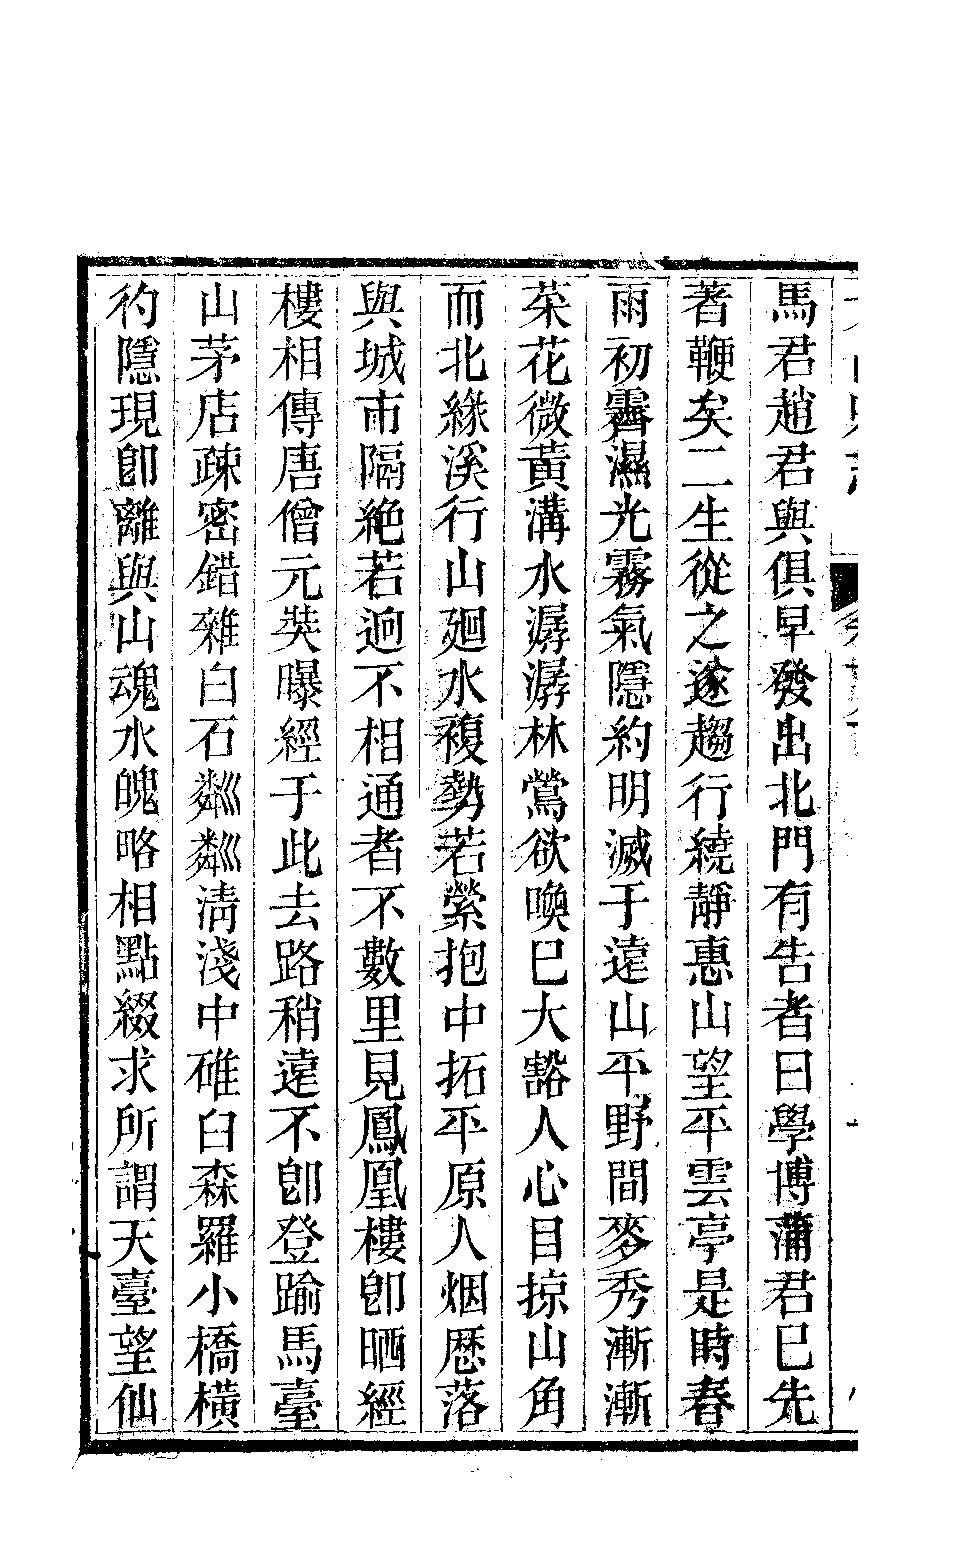 馬君趙君與俱早發出北門有告者曰學博蒲君已先
著鞭矣二生從之遂趨行繞靜惠山望平雲亭是時春
雨初霽濕光霧氣隱約明滅于遠山平野間麥秀漸漸
菜花微黃溝水潺潺林鶯欲喚已大豁人心目掠山角
而北緣溪行山廻水複勢若縈抱中拓平原人烟歷落
與城市隔絶若迥不相通者不數里見鳳凰樓卽晒經
樓相傳唐僧元奘曝經于此去路稍遠不卽登踰馬臺
山茅店疎密錯雜白石粼粼淸淺中碓臼森羅小橋橫
彴隱現卽離與山魂水魄略相點綴求所謂天臺望仙